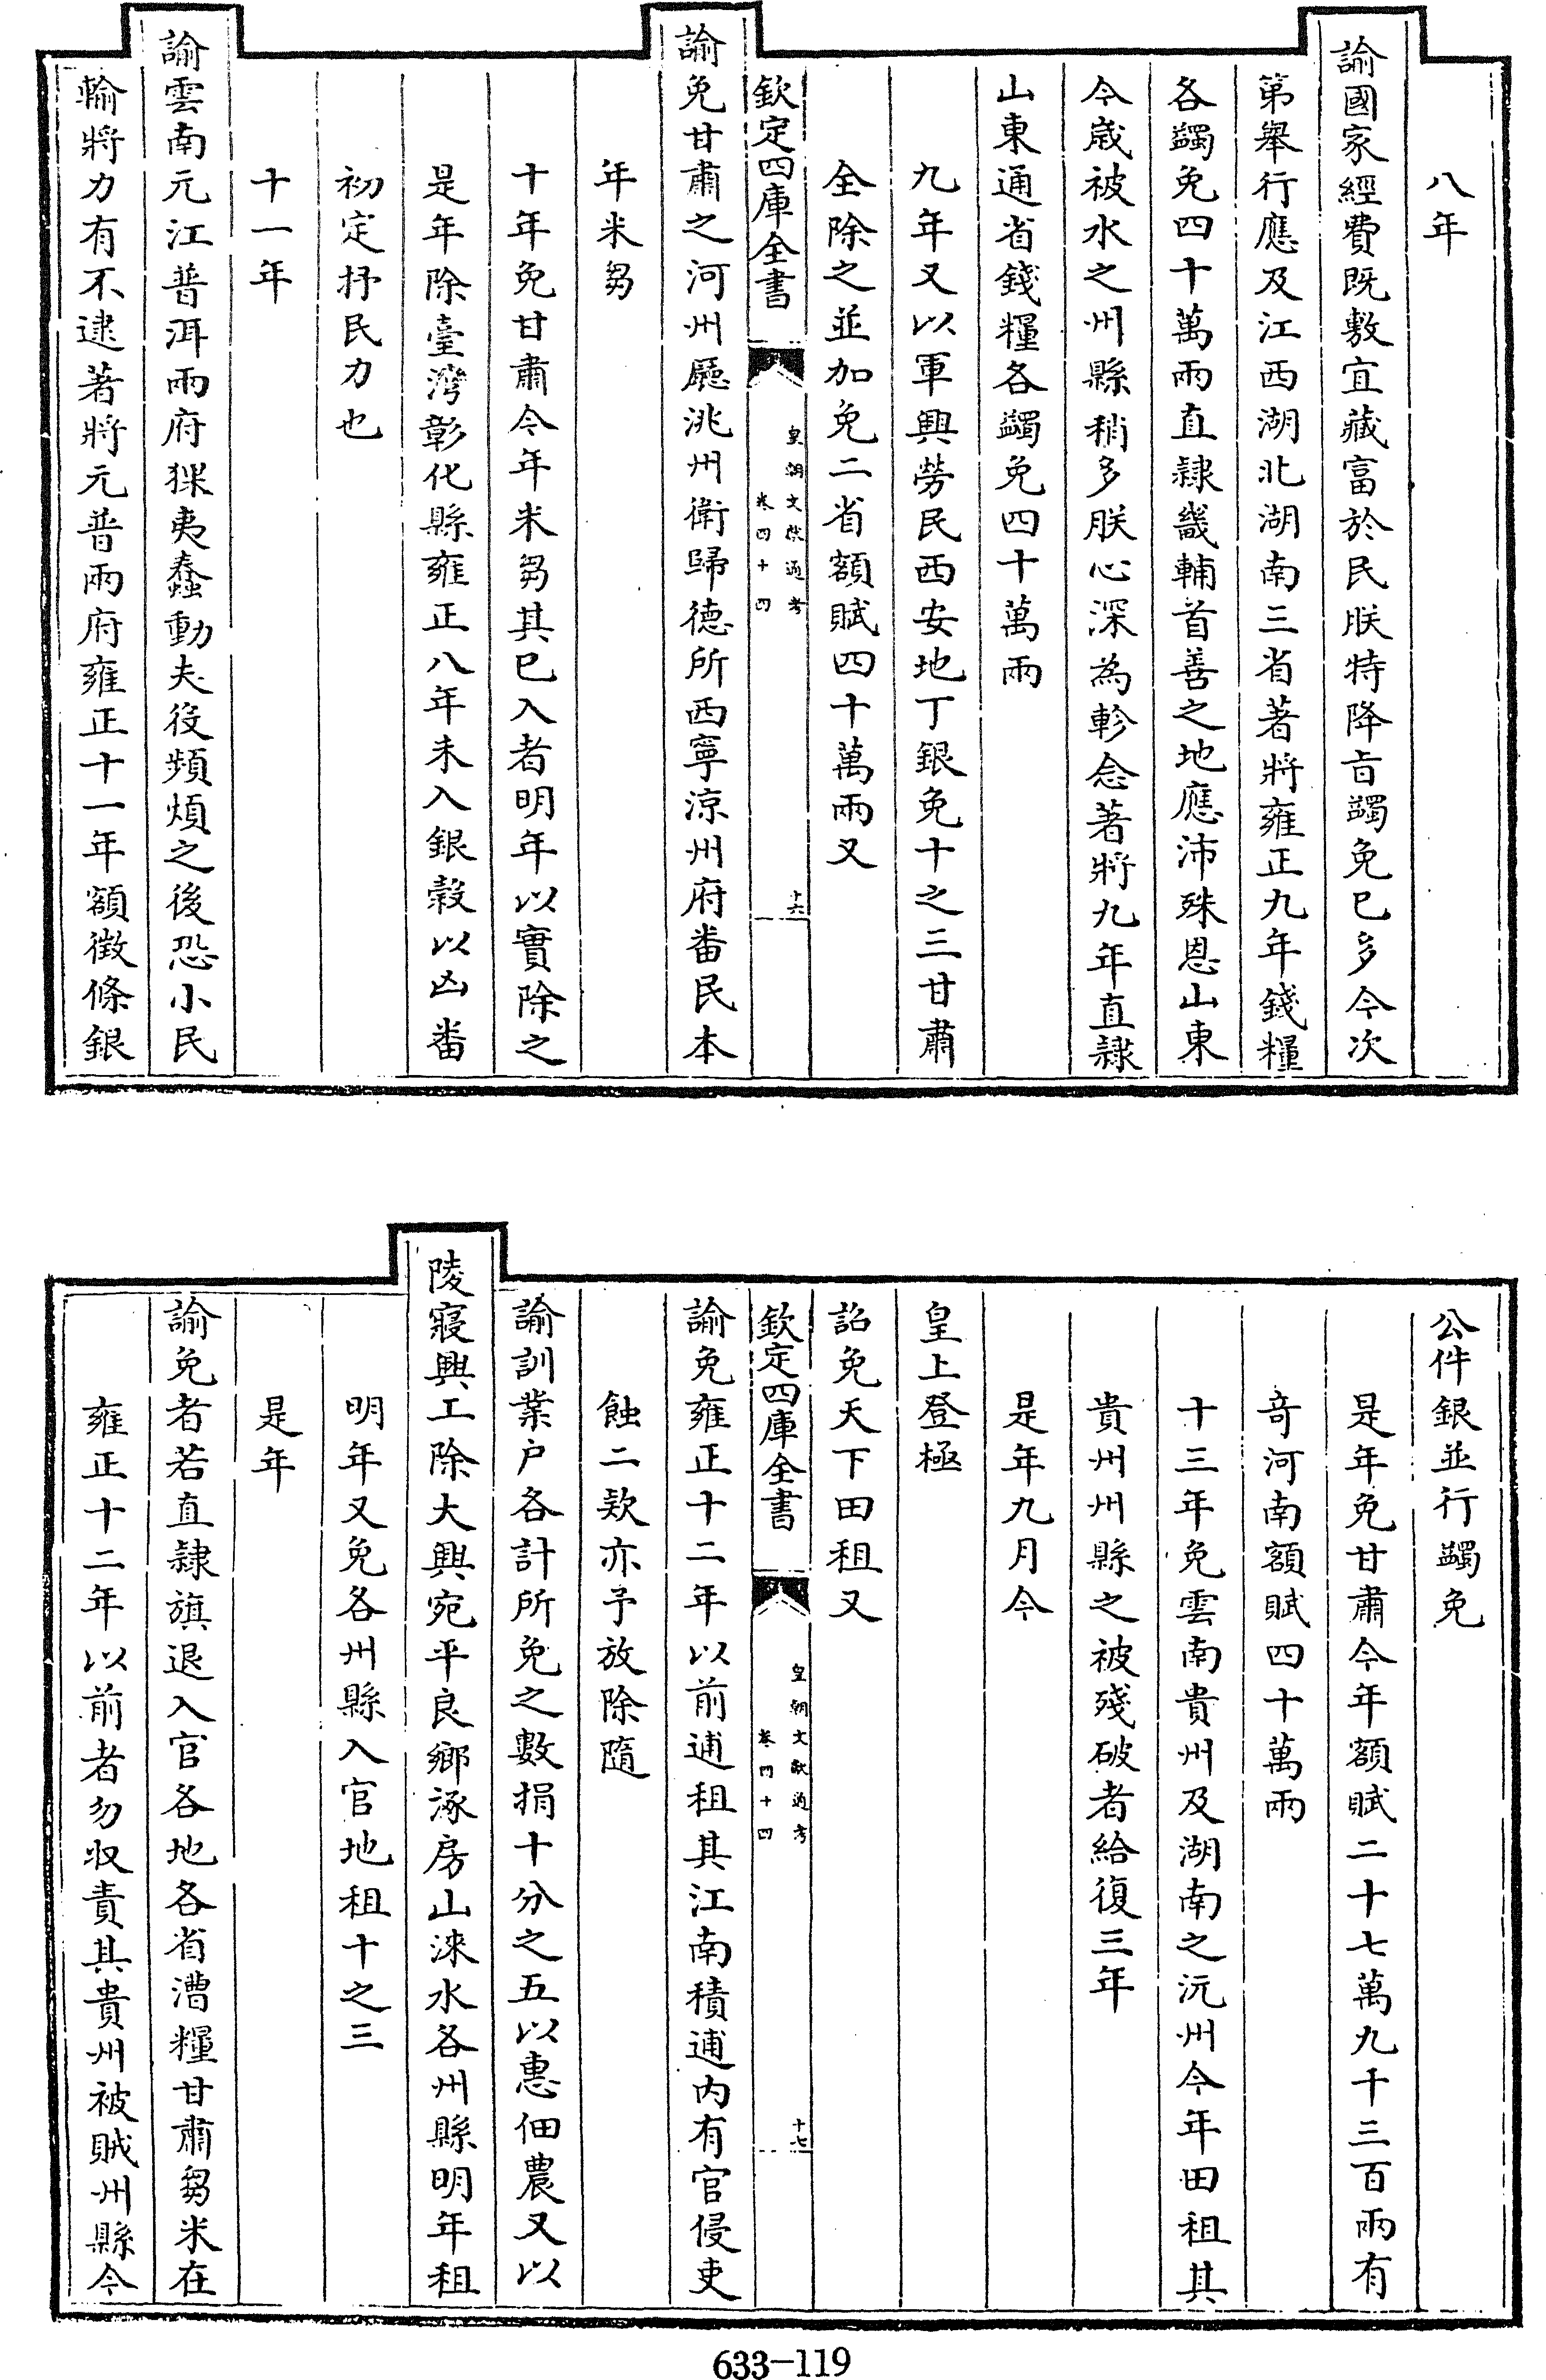 八年
諭國家經費既敷宜藏富於民朕特降旨蠲免已多今次
第舉行應及江西湖北湖南三省著將雍正九年錢糧
各蠲免四十萬兩直隷畿輔首善之地應沛殊恩山東
今歳被水之州縣稍多朕心深為軫念著將九年直隷
山東通省錢糧各蠲免四十萬兩
九年又以軍興勞民西安地丁銀免十之三甘肅
全除之並加免二省額賦四十萬兩又
欽定四庫全書
皇朝文獻通考
卷四十四
十六
諭免甘肅之河州廳洮州衛歸德所西寧涼州府畨民本
年米芻
十年免甘肅今年米芻其已入者明年以實除之
是年除臺灣彰化縣雍正八年未入銀榖以凶畨
初定抒民力也
十一年
諭雲南元江普洱兩府猓夷蠢動夫役頻煩之後恐小民
輸將力有不逮著將元普兩府雍正十一年額徴條銀
公件銀並行蠲免
是年免甘肅今年額賦二十七萬九千三百兩有
竒河南額賦四十萬兩
十三年免雲南貴州及湖南之沅州今年田租其
貴州州縣之被殘破者給復三年
是年九月今
皇上登極
詔免天下田租又
欽定四庫全書
皇朝文獻通考
卷四十四
十七
諭免雍正十二年以前逋租其江南積逋内有官侵吏
蝕二欵亦予放除隨
諭訓業户各計所免之數捐十分之五以惠佃農又以
陵寢興工除大興宛平良鄉涿房山淶水各州縣明年租
明年又免各州縣入官地租十之三
是年
諭免者若直隷旗退入官各地各省漕糧甘肅芻米在
雍正十二年以前者勿収責其貴州被賊州縣今
633-119